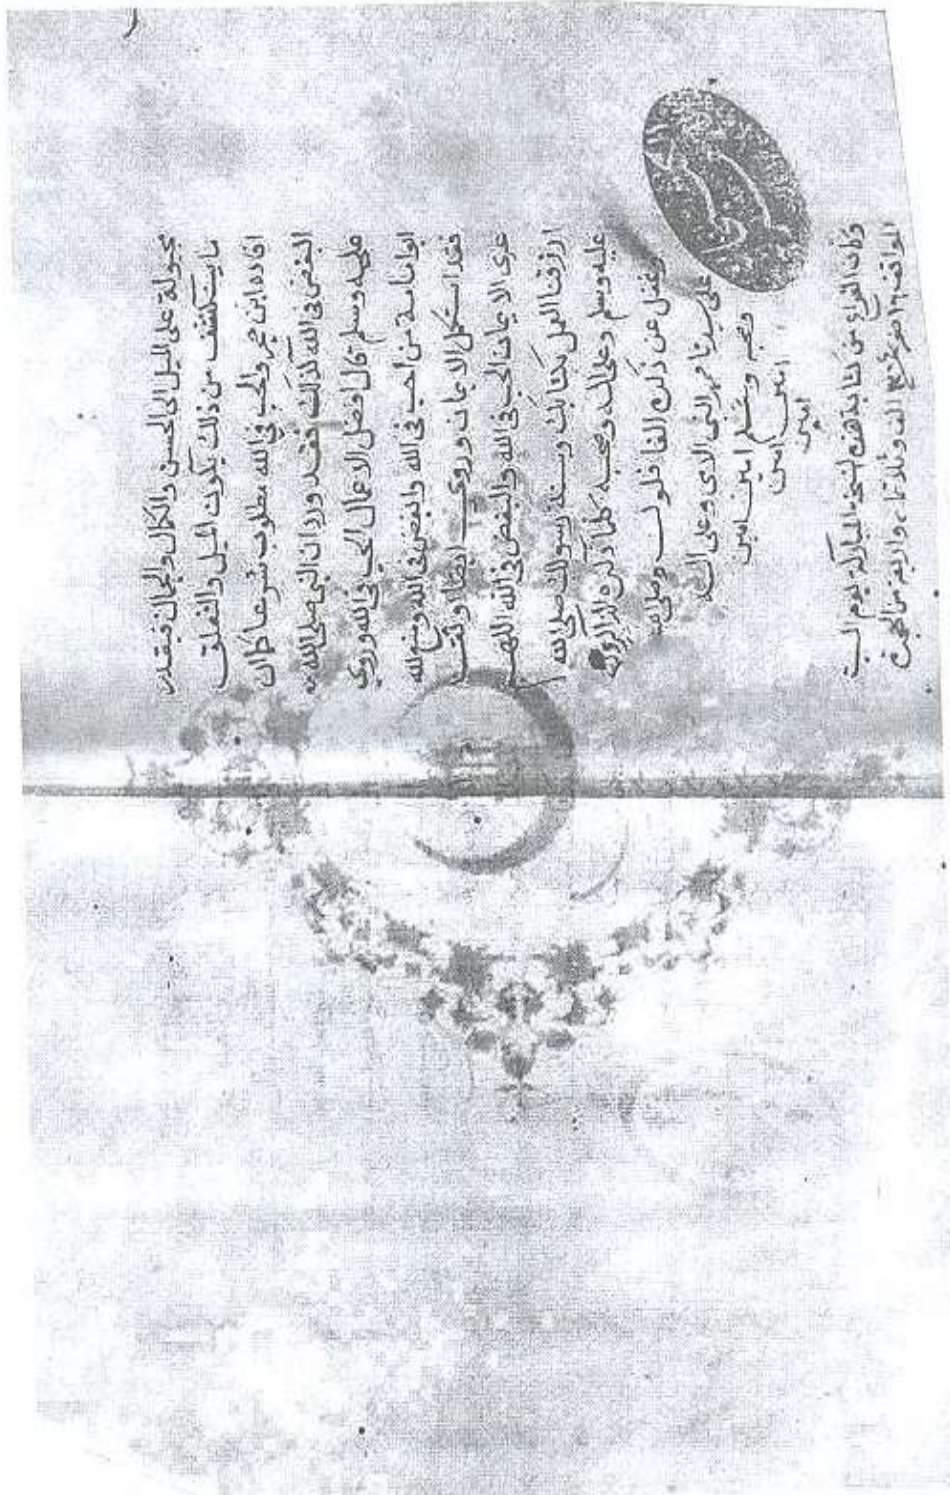 مجبولة على الميل الى الحسن والكمال والجمال فبقدر
ما يستكشف من ذلك يكون الميل والتعلق
افاده ابن حجر والحب في الله مطلوب شرعا كما ان
البغض في الله كذلك فقد ورد ان النبي صلى الله
عليه وسلم قال افضل الاعمال الحب في الله وروي
ابو امامة من احب في الله وابغض في الله ومنع لله
فقد استكمل الايمان وروي ايضا اوثق
عرى الايمان الحب في الله والبغض في الله اللهم
ارزقنا العمل بكتابك وسنة رسولك صلى الله
عليه وسلم وعلى اله وصحبه كلما ذكره الذاكرون
وغفل عن ذكره الغافلون وصلى الله
على سيدنا محمد النبي الامي وعلى اله
وصحبه وسلم امين امين
امين امين
امين
وكان الفراغ من كتابة هذه النسخة المباركة يوم السبت
الموافق الف وثلاثماية واربعة من الهجرة